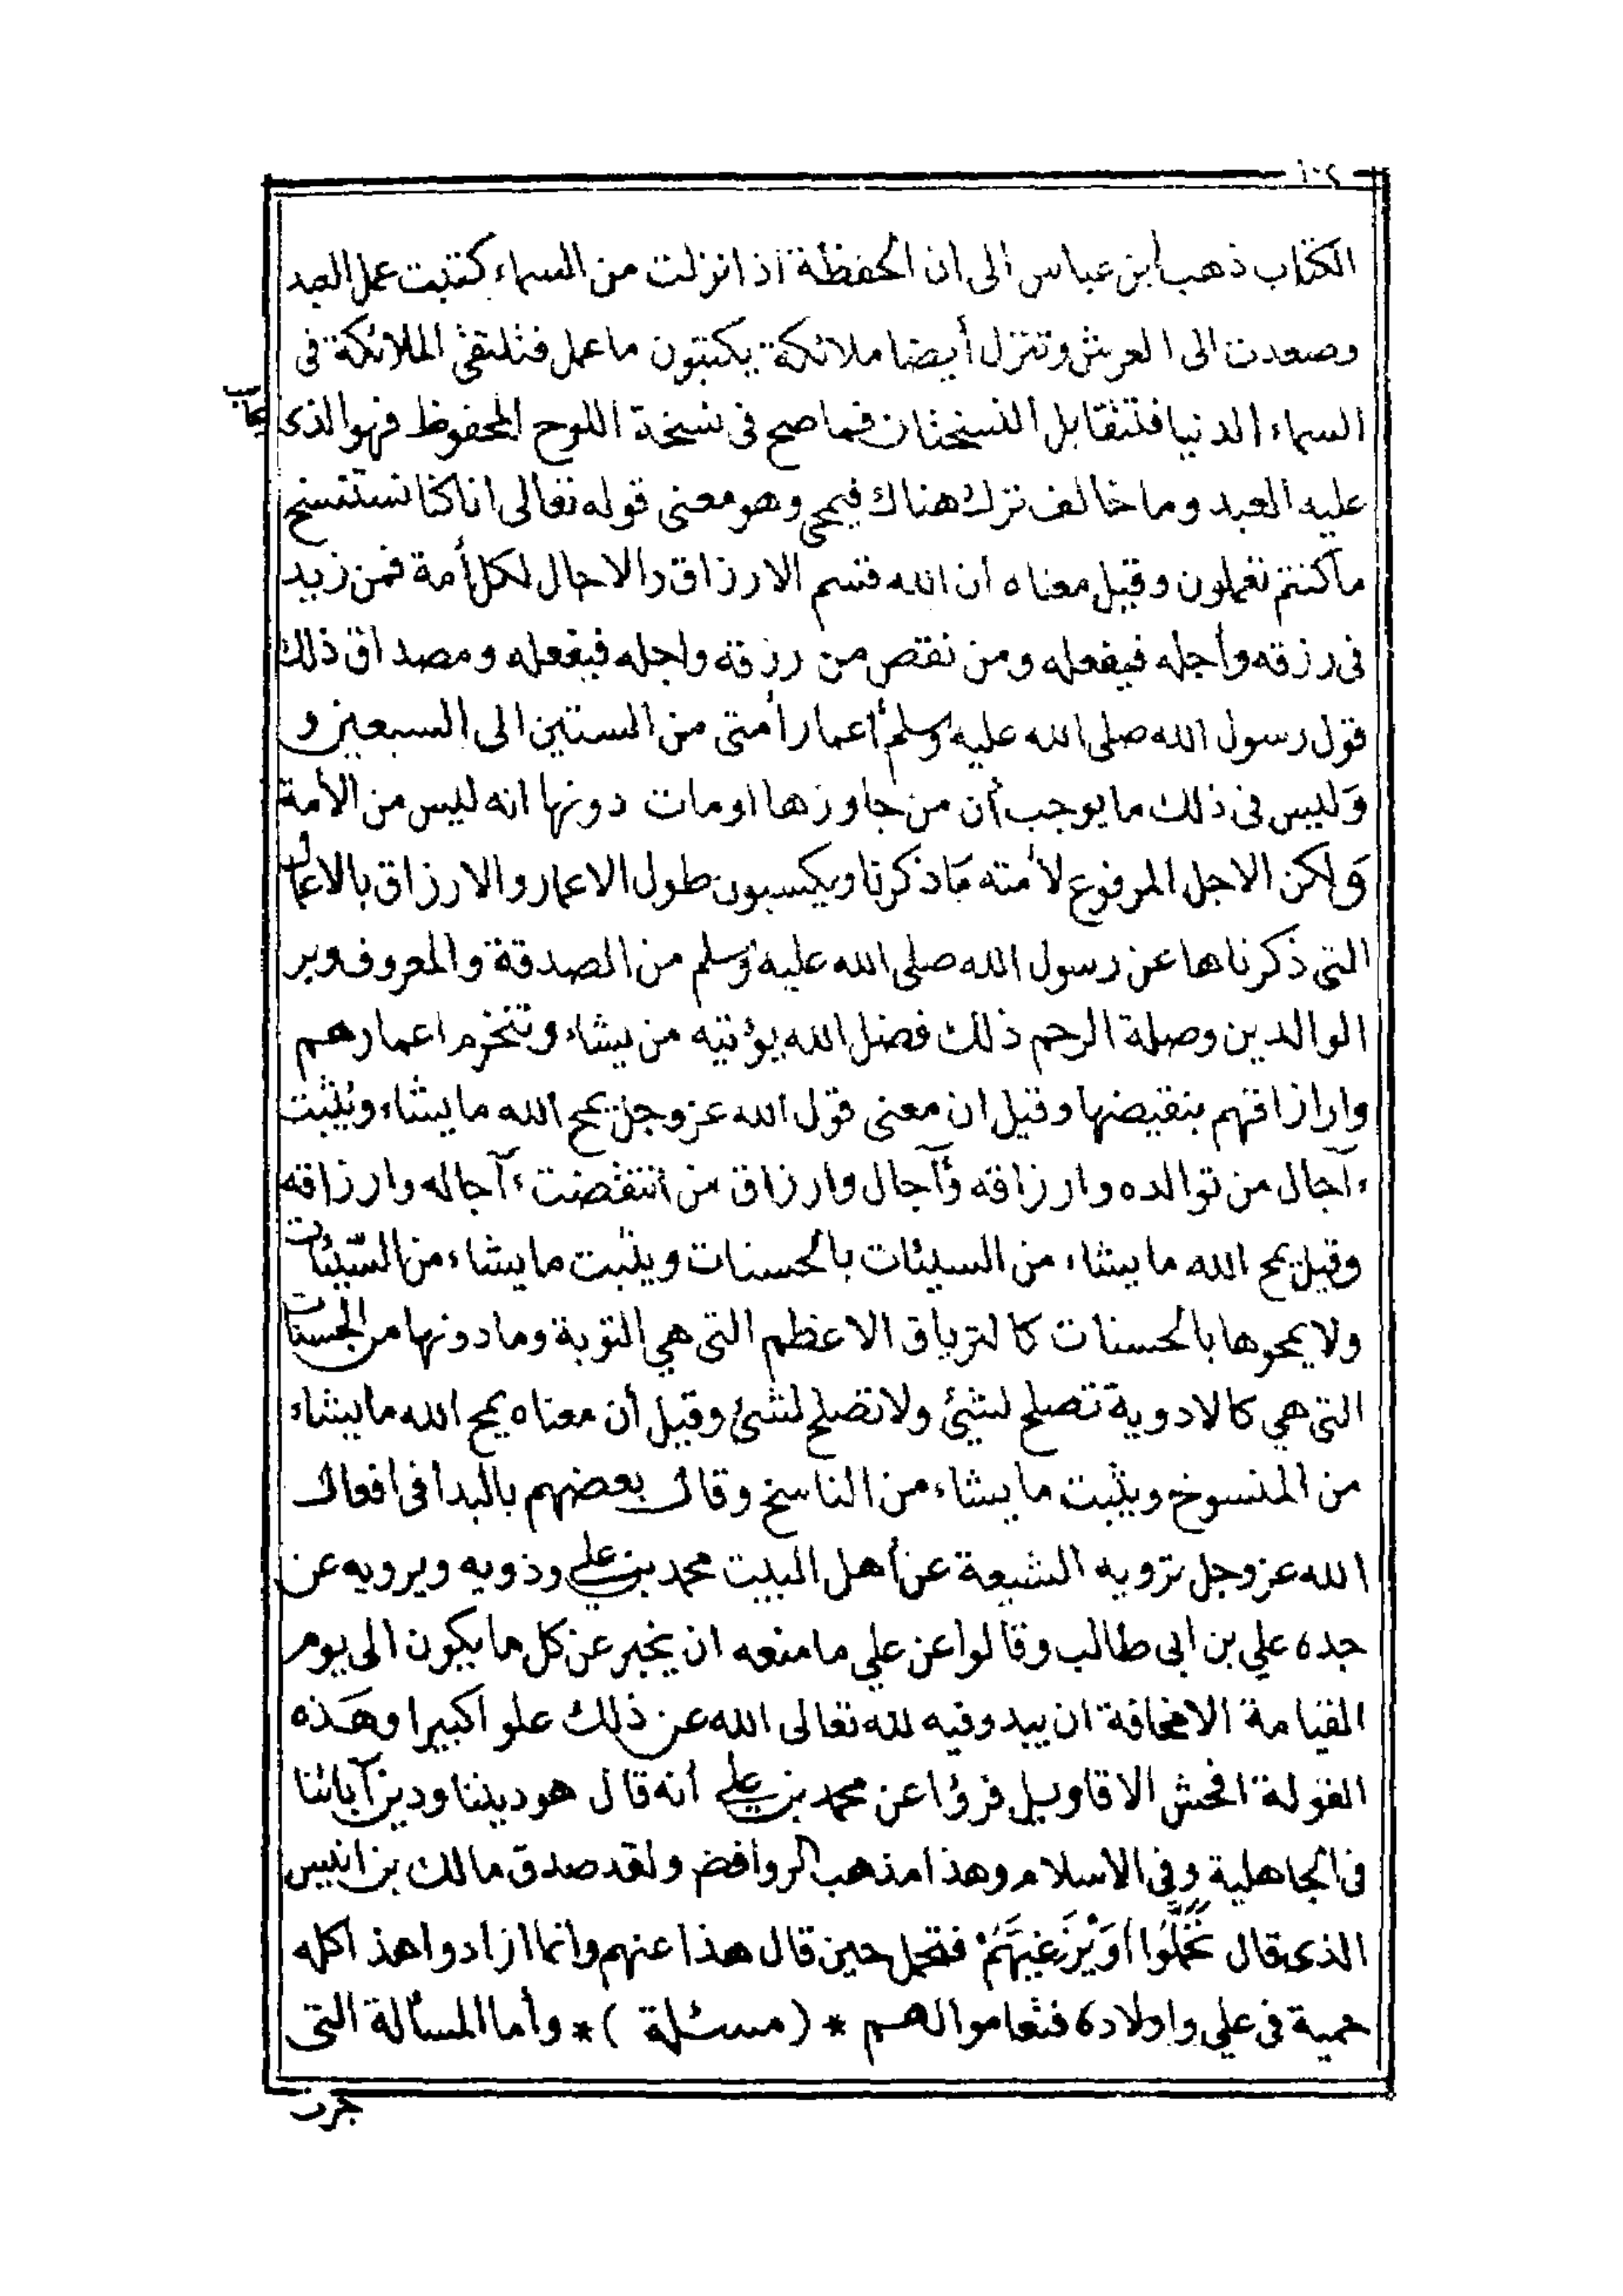 ١٠٢
الكتاب ذهب ابن عباس الى ان الحفظة اذا نزلت من السماء كتبت عمل العبد
وصعدت الى العرش وتنزل أيضا ملائكة يكتبون ما عمل فتلتقى الملائكة فى
السماء الدنيا فتتقابل النسختان فما صح فى نسخة اللوح المحفوظ فهو الذى يحاسب
عليه العبد وما خالف ترك هناك فيمحى وهو معنى قوله تعالى انا كنا نستنسخ
ما كنتم تعملون وقيل معناه ان الله قسم الارزاق والاجال لكل أمة فمن زيد
فى رزقه وأجله فبفعله ومن نقص من رزقه واجله فبفعله ومصداق ذلك
قول رسول الله صلى الله عليه وسلم أعمار أمتى من الستين الى السبعين و
وليس فى ذلك ما يوجب أن من جاوزها او مات دونها انه ليس من الأمة
ولكن الاجل المرفوع لأمته ما ذكرنا ويكسبون طول الاعمار والارزاق بالاعمال
التى ذكرناها عن رسول الله صلى الله عليه وسلم من الصدقة والمعروف وبر
الوالدين وصلة الرحم ذلك فضل الله يؤتيه من يشاء وتنخرم اعمارهم
وارزاقهم بنقيضها وقيل ان معنى قول الله عز وجل يمح الله ما يشاء ويثبت
ءآجال من توالده وارزاقه وآجال وارزاق من انتقضت ءآجاله وارزاقه
وقيل يمح الله ما يشاء من السيئات بالحسنات ويثبت ما يشاء من السّيئات
ولا يمحوها بالحسنات كالترياق الاعظم التى هي التوبة وما دونها من الحسنات
التى هي كالادوية تصلح لشئ ولا تصلح لشئ وقيل أن معناه يمح الله ما يشاء
من المنسوخ ويثبت ما يشاء من الناسخ وقال بعضهم بالبدا فى افعال
الله عز وجل ترويه الشيعة عن أهل البيت محمد بن علي وذويه ويرويه عن
جده علي بن ابى طالب وقالوا عن علي ما منعه ان يخبر عن كل ما يكون الى يوم
القيامة الا مخافة ان يبدو فيه لله تعالى الله عن ذلك علوا كبيرا وهذه
القولة افحش الاقاويل فرؤا عن محمد بن علي أنه قال هو ديننا ودين آبائنا
فى الجاهلية وفى الاسلام وهذا مذهب الروافض ولقد صدق مالك بن انيس
الذى قال فتحمل حين قال هذا عنهم وانما ازادوا هذا كله
حمية فى علي واولاده فتعاموا لهم * ( مسئلة ) * وأما المسألة التى
جرت